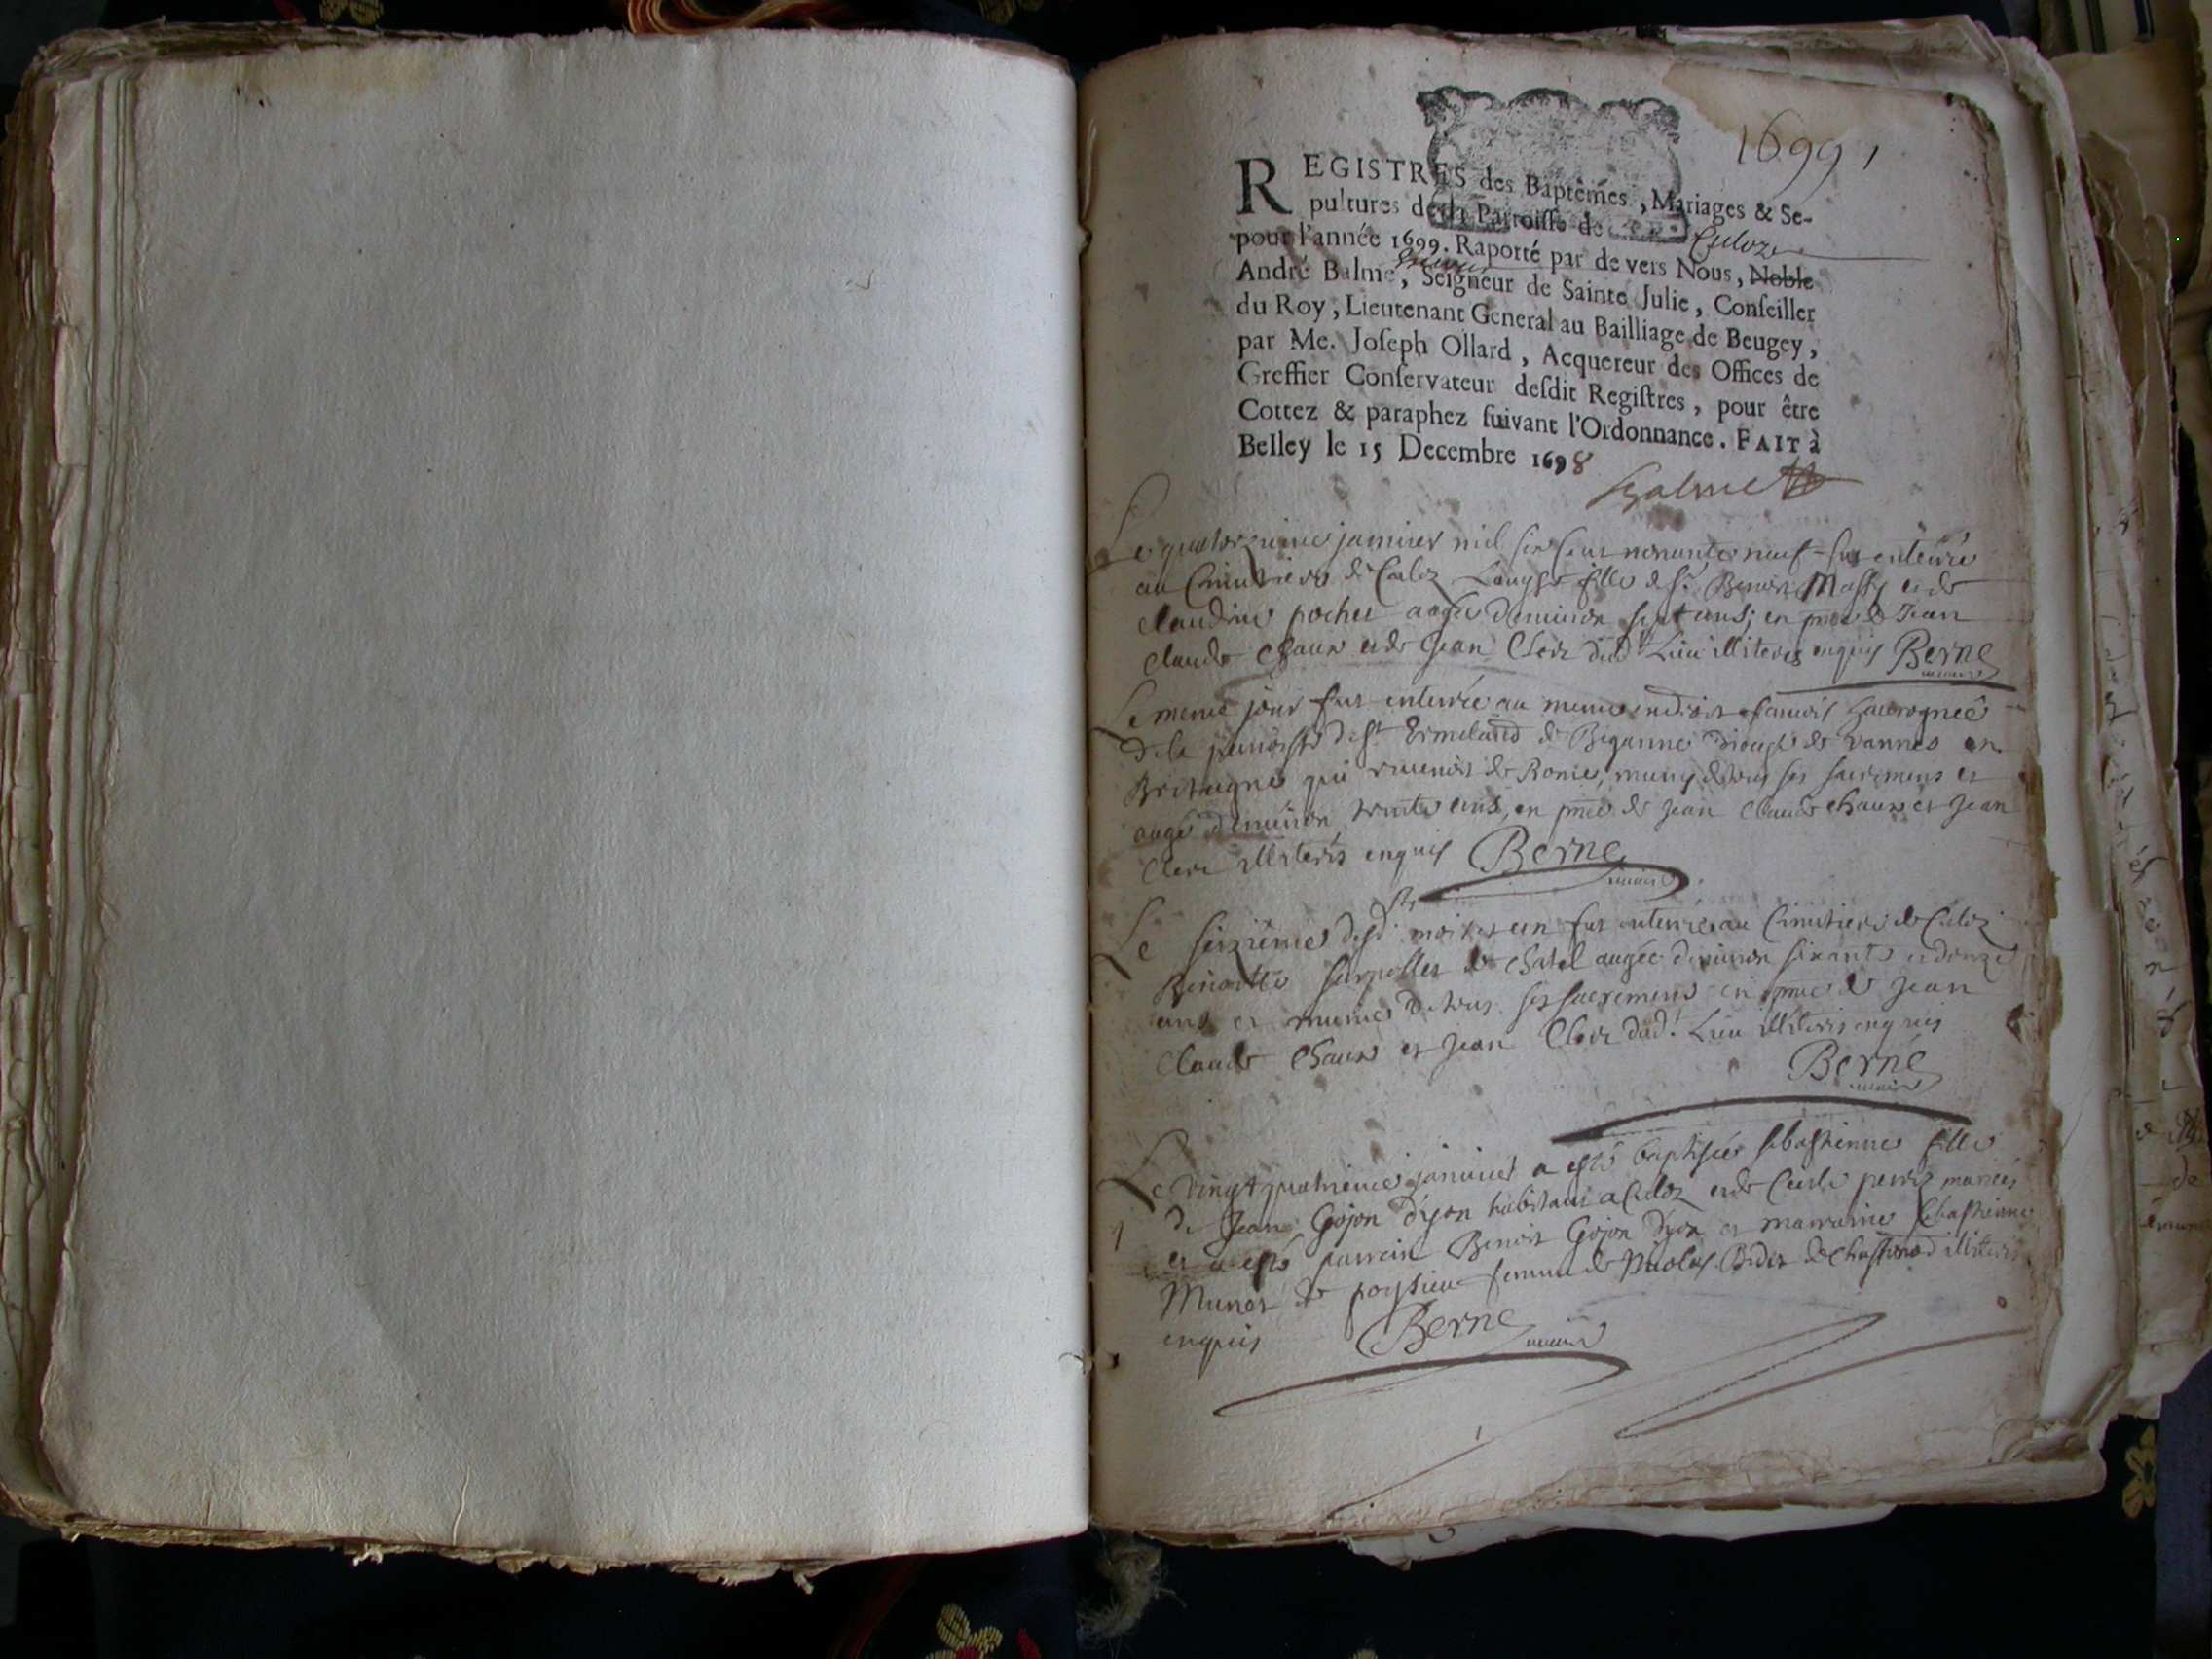 1699 1
REGISTRES des Baptêmes, Mariages & Se-
pultures de la Parroisse de Culoz
pour l'année 1699. Raporté par de vers Nous, Noble
André Balme, Seigneur de Sainte Julie, Conseiller
du Roy, Lieutenant General au Bailliage de Beugey,
par Me. Joseph Ollard, Acquereur des Offices de
Greffier Conservateur desdit Registres, pour être
Cottez & paraphez suivant l'Ordonnance. FAIT à
Belley le 15 Decembre 1698
Balme
Le quatorzieme janvier mil six cent nonante neuf fut enterrée
au Cimetiere de Culoz fille de Sr. Benoit Massy et de
Claudine pochet aagée d'environ sept ans, en pnce de Jean
Claude Chaux et de Jean Clerc dud. Lieu illiteres enquis Berne
Le meme jour fut enterré au meme endroit
de la parroisse de St Ermeland de Bignanne de vannes en
Bretagne qui revenoit de Rome, muny de tous ses sacremens et
augé d'environ trente ans, en pnce de Jean Claude Chaux et Jean
Clerc illiterés enquis Berne
Le seizieme dud. mois et an fut enterrée au Cimetiere de Culoz
Benoitte de Chatel augée d'environ sixante et douze
ans et munie de tous ses sacremens en pnce de Jean
Claude Chaux et Jean Clerc dud. Lieu illiterés enquis
Berne
Le vingt quatrieme janvier a esté baptisée sebastienne fille
1 de Jean Gojon d'yon habitant a Culoz et de perriz mariés
et a esté parrein Benoit Gojon d'yon et marraine sebastienne
Munet de poysieu femme de Nicolas Bidet de Chastenod illiteris
enquis Berne